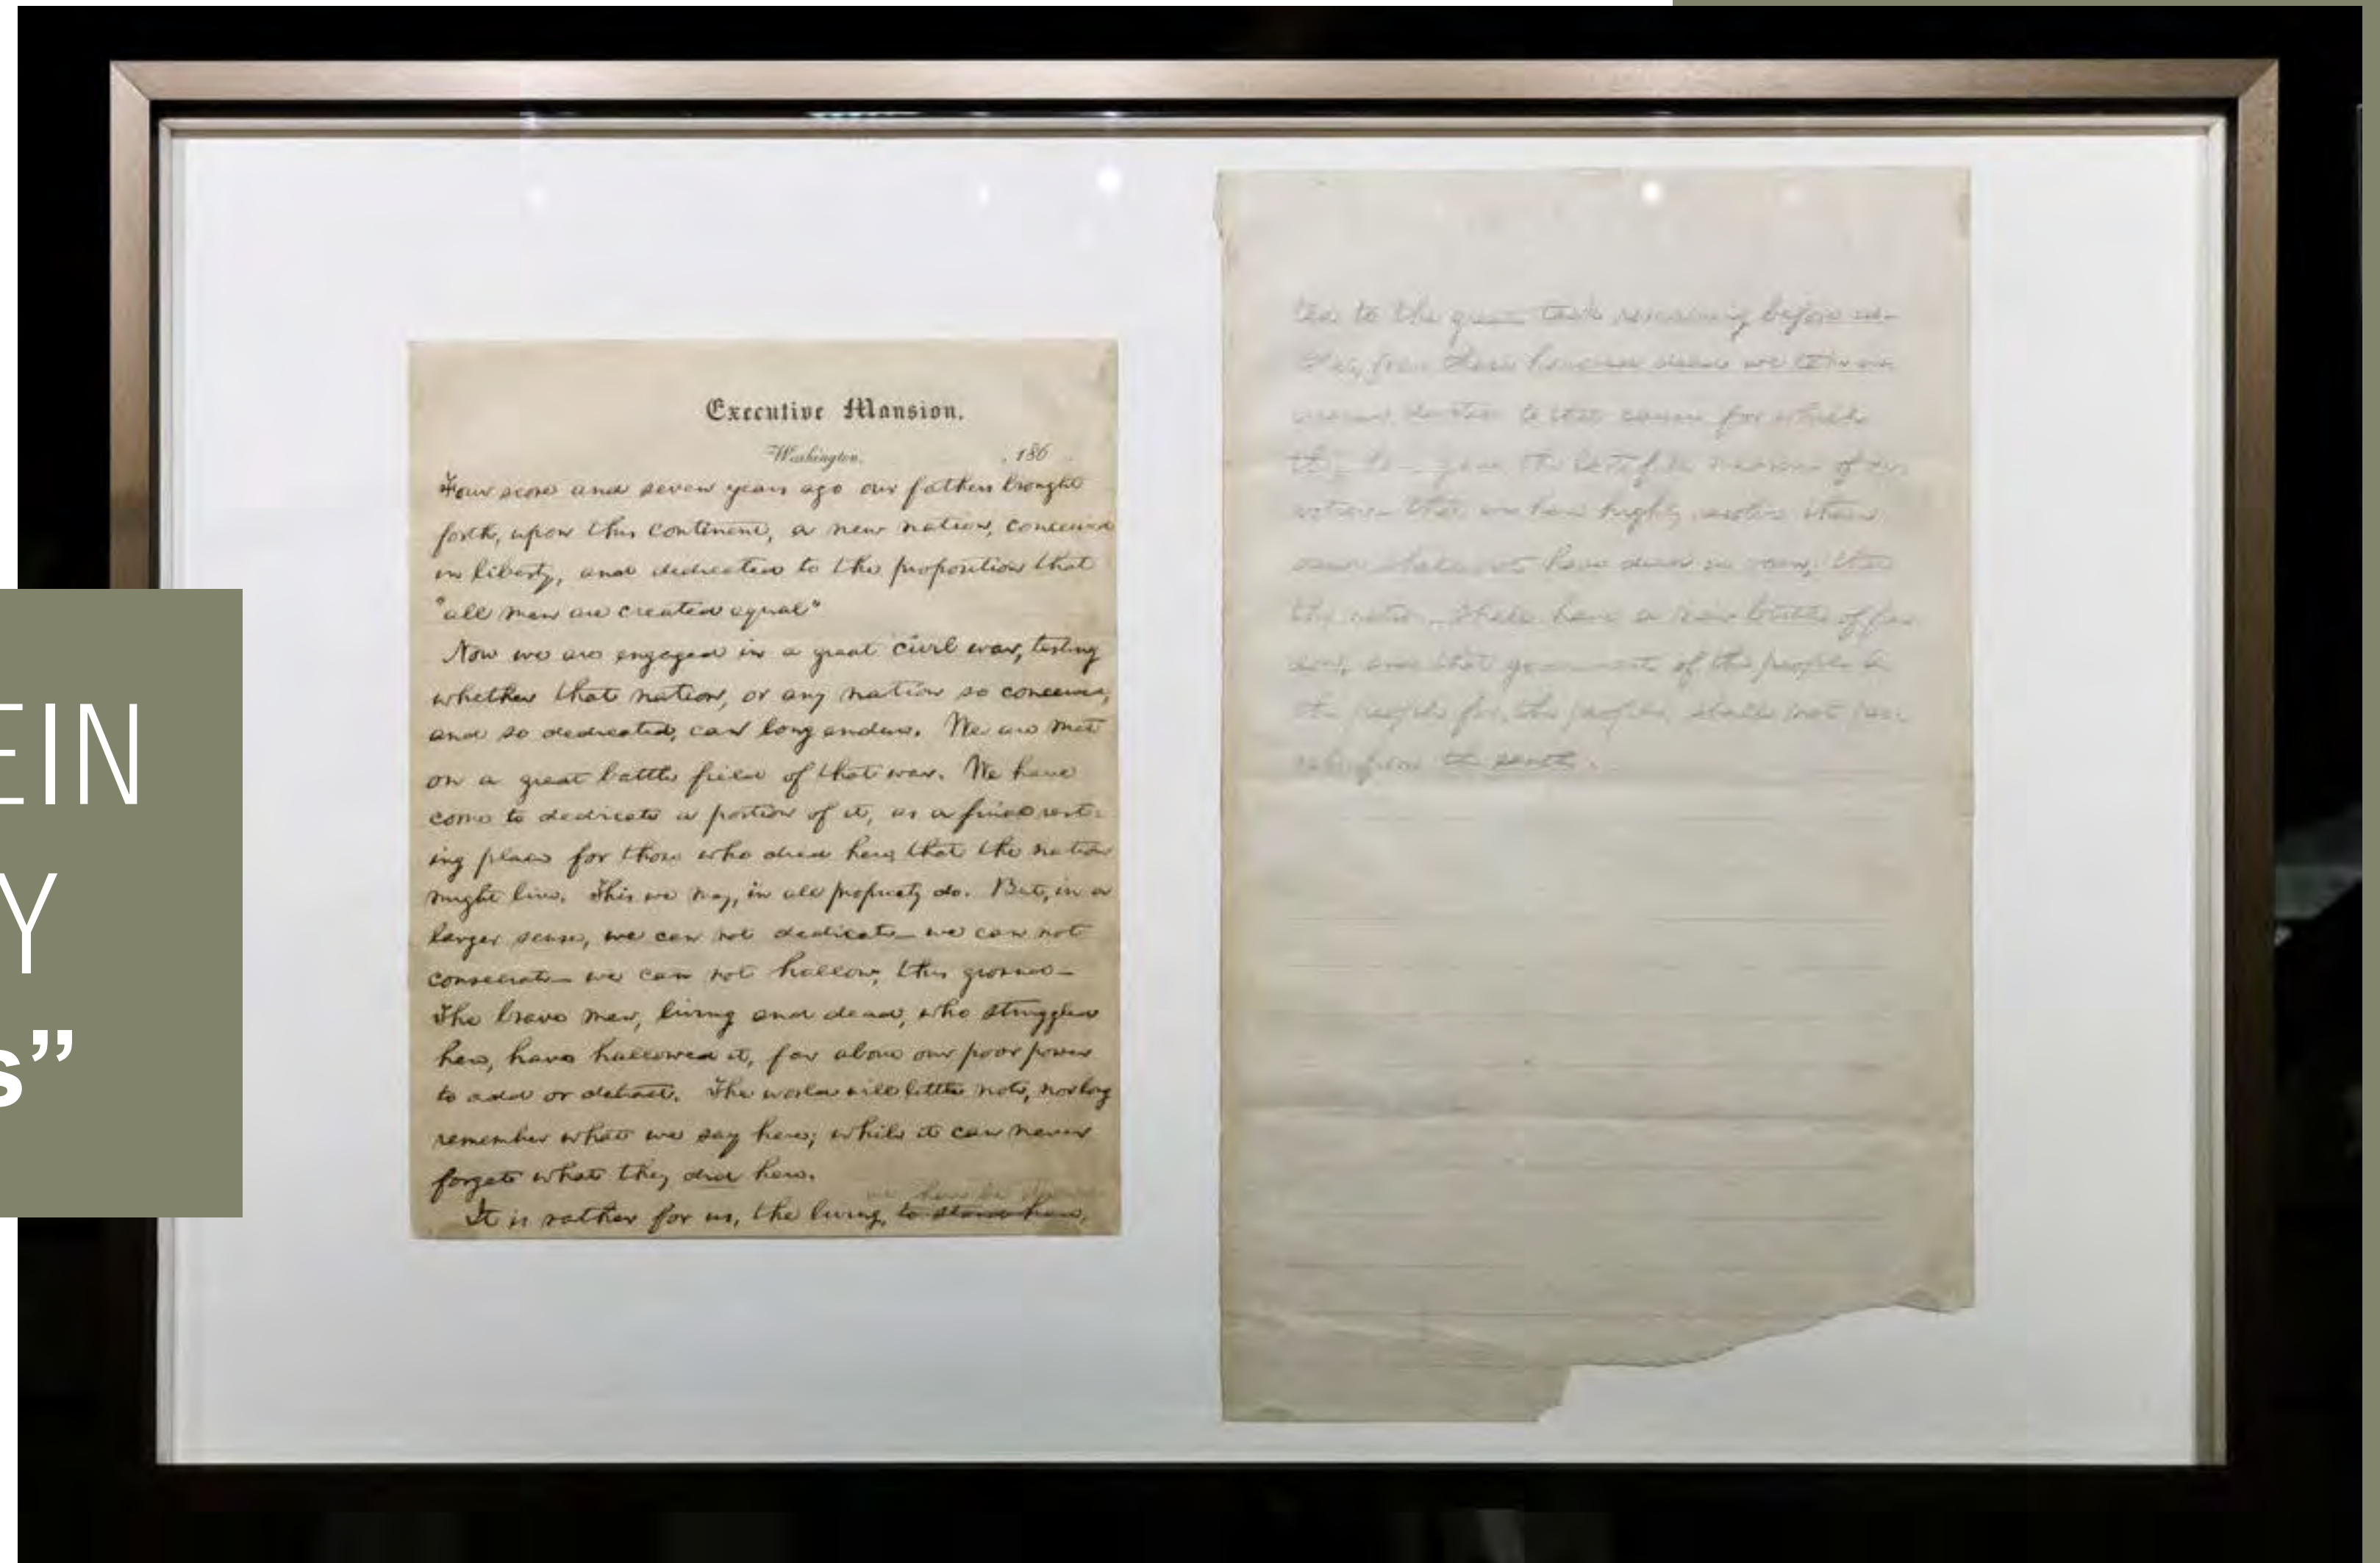 EIN
Y
s”
Executive Mansion,
Washington, , 186
Four score and seven years ago our fathers brought
forth, upon this continent, a new nation, conceived
in liberty, and dedicated to the proposition that
"all men are created equal"
Now we are engaged in a great civil war, testing
whether that nation, or any nation so conceived,
and so dedicated, can long endure. We are met
on a great battle field of that war. We have
come to dedicate a portion of it, as a final rest-
ing place for those who died here, that the nation
might live. This we may, in all propriety do. But, in a
larger sense, we can not dedicate— we can not
consecrate— we can not hallow, this ground—
The brave men, living and dead, who struggled
here, have hallowed it, far above our poor power
to add or detract. The world will little note, nor long
remember what we say here; while it can never
forget what they did here.
we here be
It is rather for us, the living, to stand here,
ted to the great task remaining before us—
that, from these honored dead we take in-
creased devotion to that cause for which
they here, gave the last full measure of de-
votion— that we here highly resolve these
dead shall not have died in vain; that
the nation, shall have a new birth of free-
dom, and that government of the people by
the people for the people, shall not per-
ish from the earth.